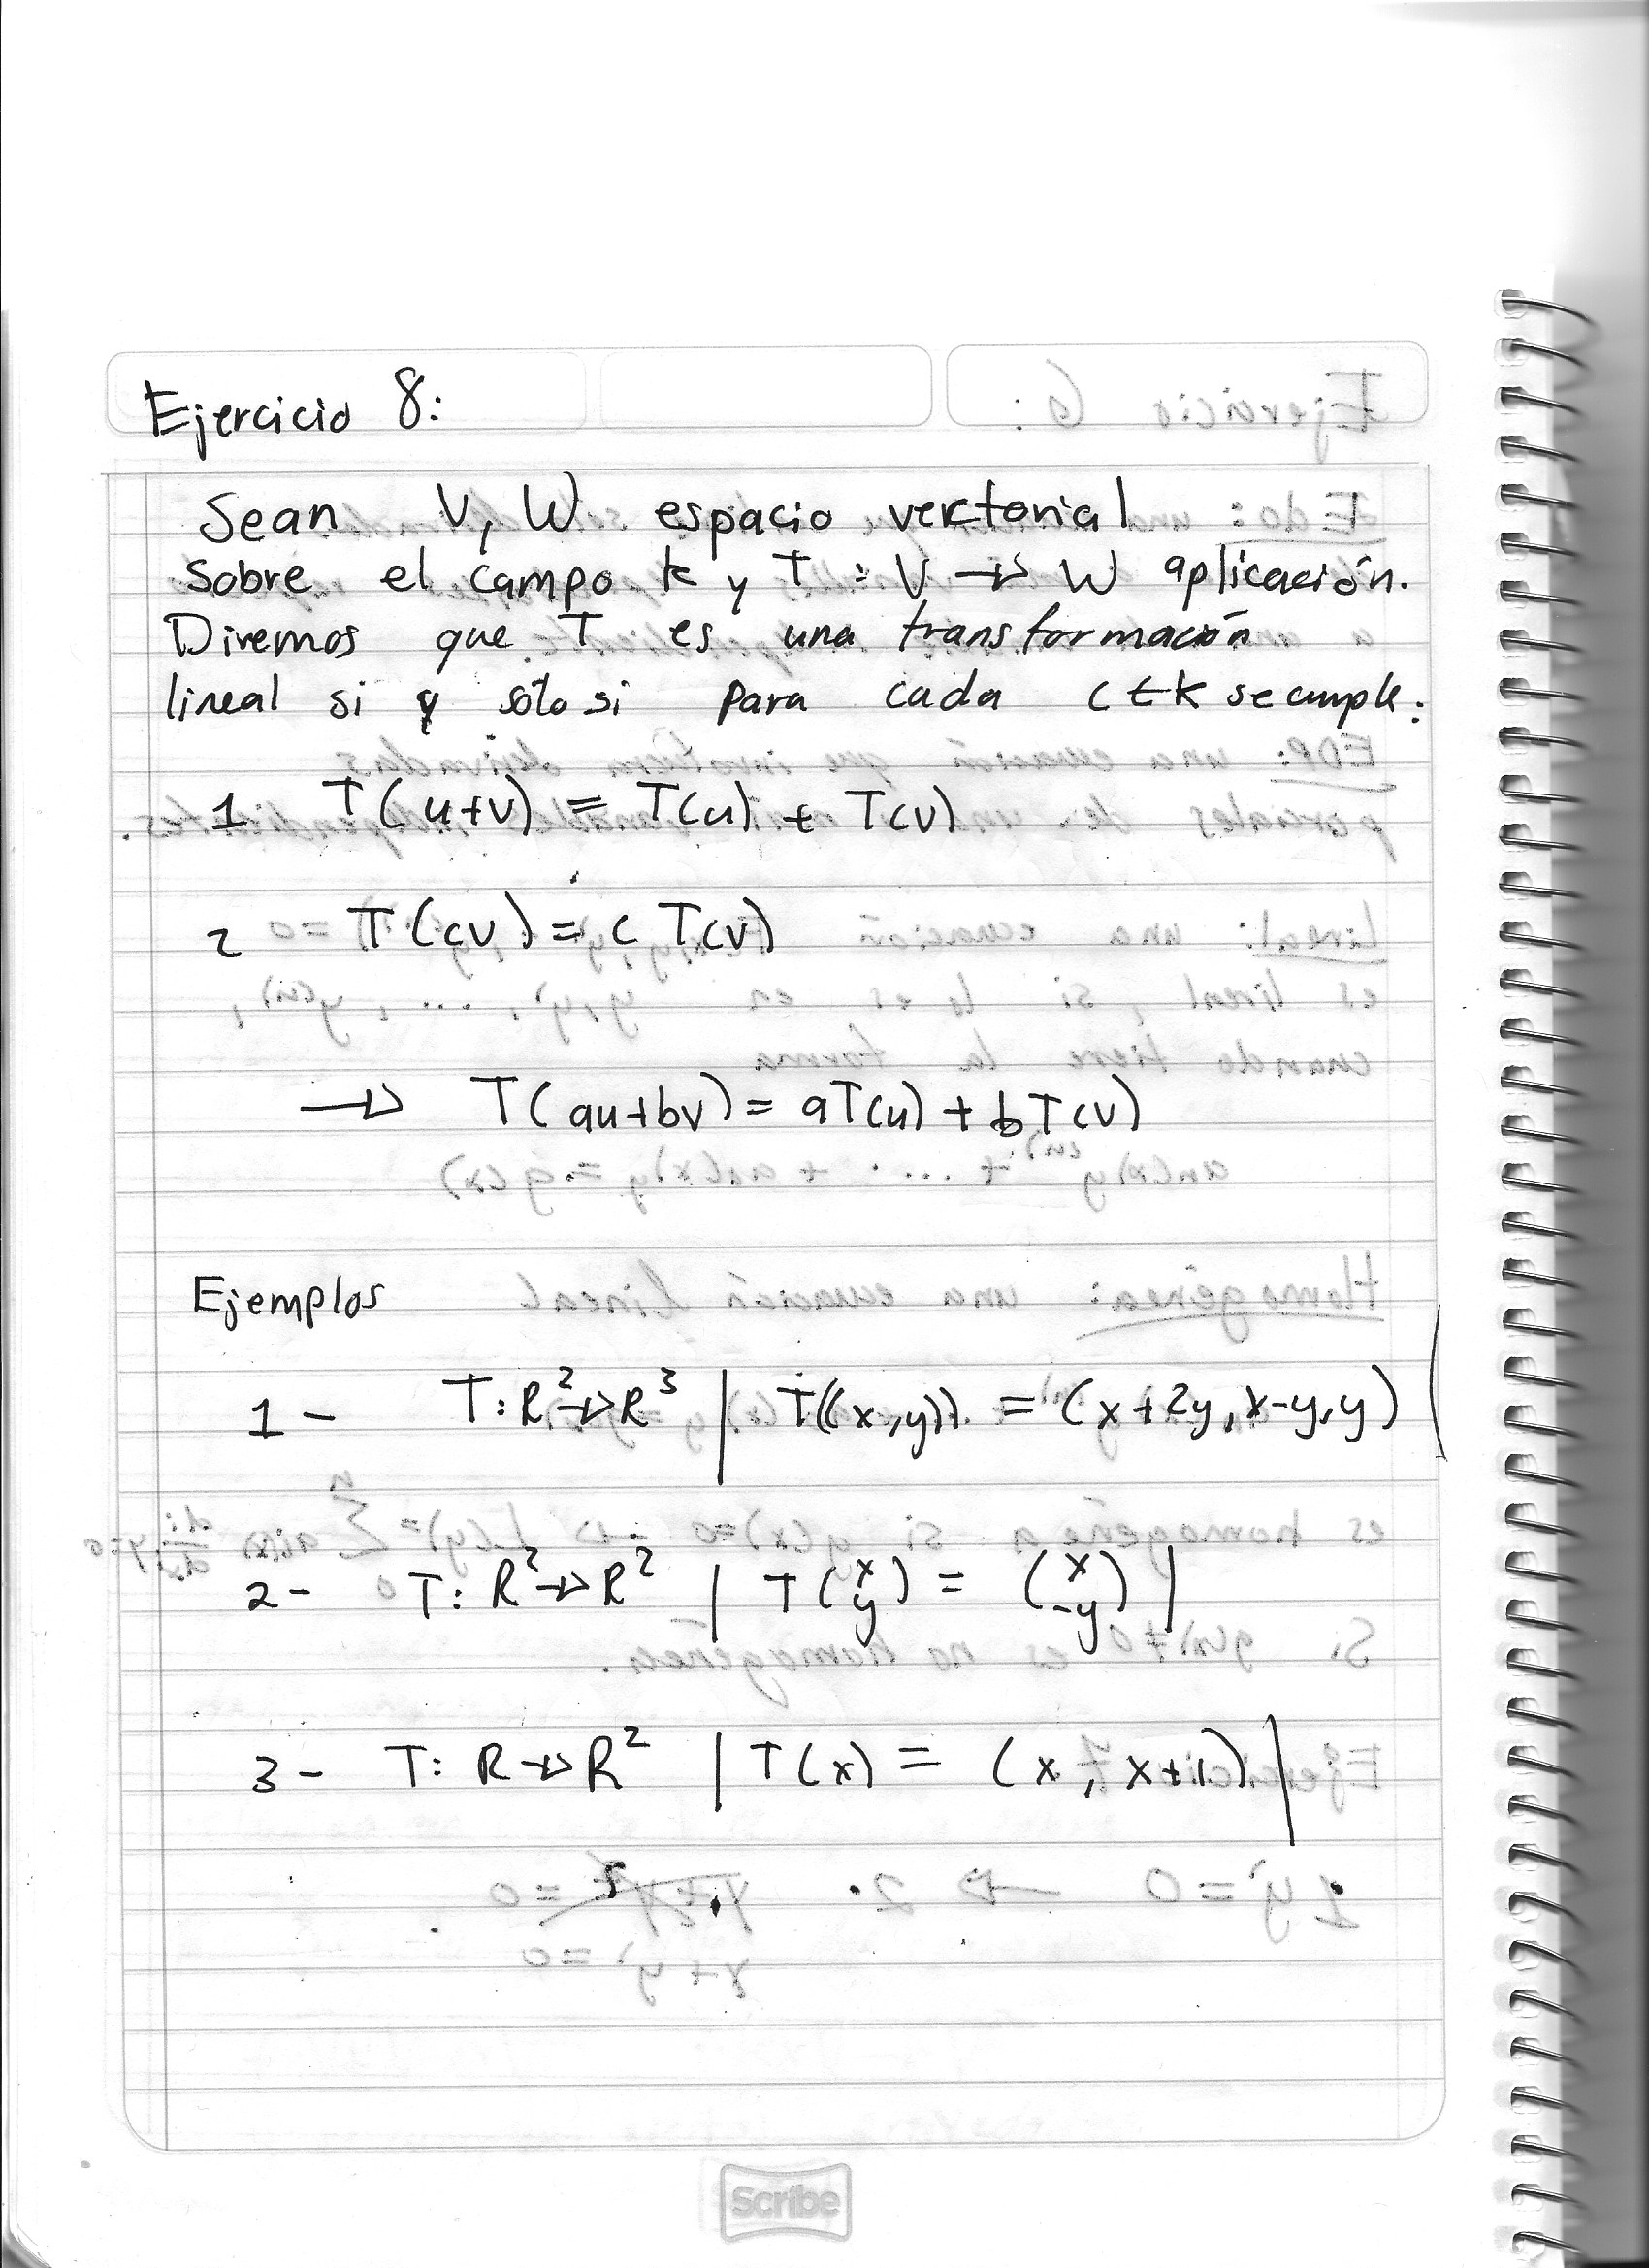 Ejercicio 8:
Sean V, W espacio vectorial
Sobre el campo k y T : V → W aplicación.
Diremos que T es una transformación
lineal si y sólo si para cada c ∈ k se cumple:
1 T(u+v) = T(u) + T(v)
2 T(cv) = c T(v)
→ T(au+bv) = aT(u) + bT(v)
Ejemplos
1 - T: R² → R³ | T((x,y)) = (x+2y, x-y, y) |
2 - T: R² → R² | T(x y) = (x -y) |
3 - T: R → R² | T(x) = (x, x+1) |
Scribe